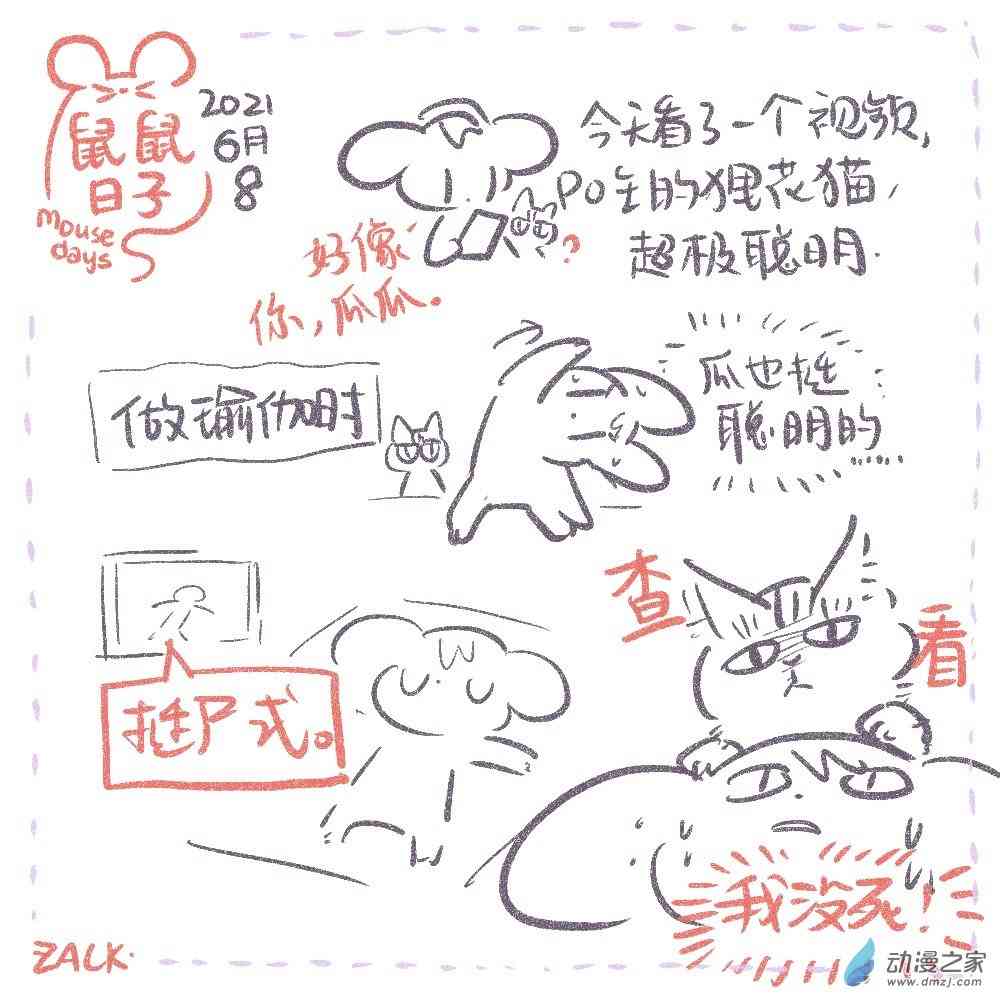 鼠鼠
日子
mouse
days
2021
6月
8
今天看了一个视频,
PO主的狸花猫,
超极聪明.
好像
你,瓜瓜。
?
做瑜伽时
瓜也挺
聪明的
......
挺尸式。
查
看
我没死!
ZALK.
动漫之家
www.dmzj.com